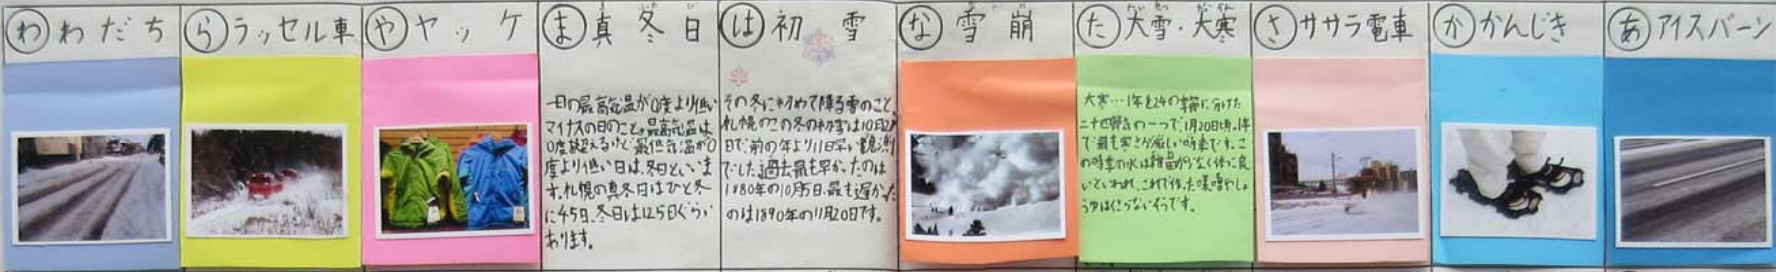 わ わだち
ら ラッセル車
や ヤッケ
ま 真冬日
一日の最高気温が0度より低い
マイナスの日のこと。最高気温は
0度を超えるけど最低気温が0
度より低い日は、冬日といいま
す。札幌の真冬日はひと冬
に45日、冬日は125日ぐらい
あります。
は 初雪
その冬に初めて降る雪のこと。
札幌のこの冬の初雪は10月
日で、前の年より11日早い観測
でした。過去最も早かったのは
1880年の10月5日、最も遅かった
のは1890年の11月20日です。
な 雪崩
た 大雪・大寒
大寒…1年を24の季節に分けた
二十四節気の一つで、1月20日頃。1年
で最も寒さが厳しい時季です。こ
の時季の水は雑菌がなく体に良
いといわれ、これで作った味噌やしょ
うゆはくさらないそうです。
さ ササラ電車
か かんじき
あ アイスバーン